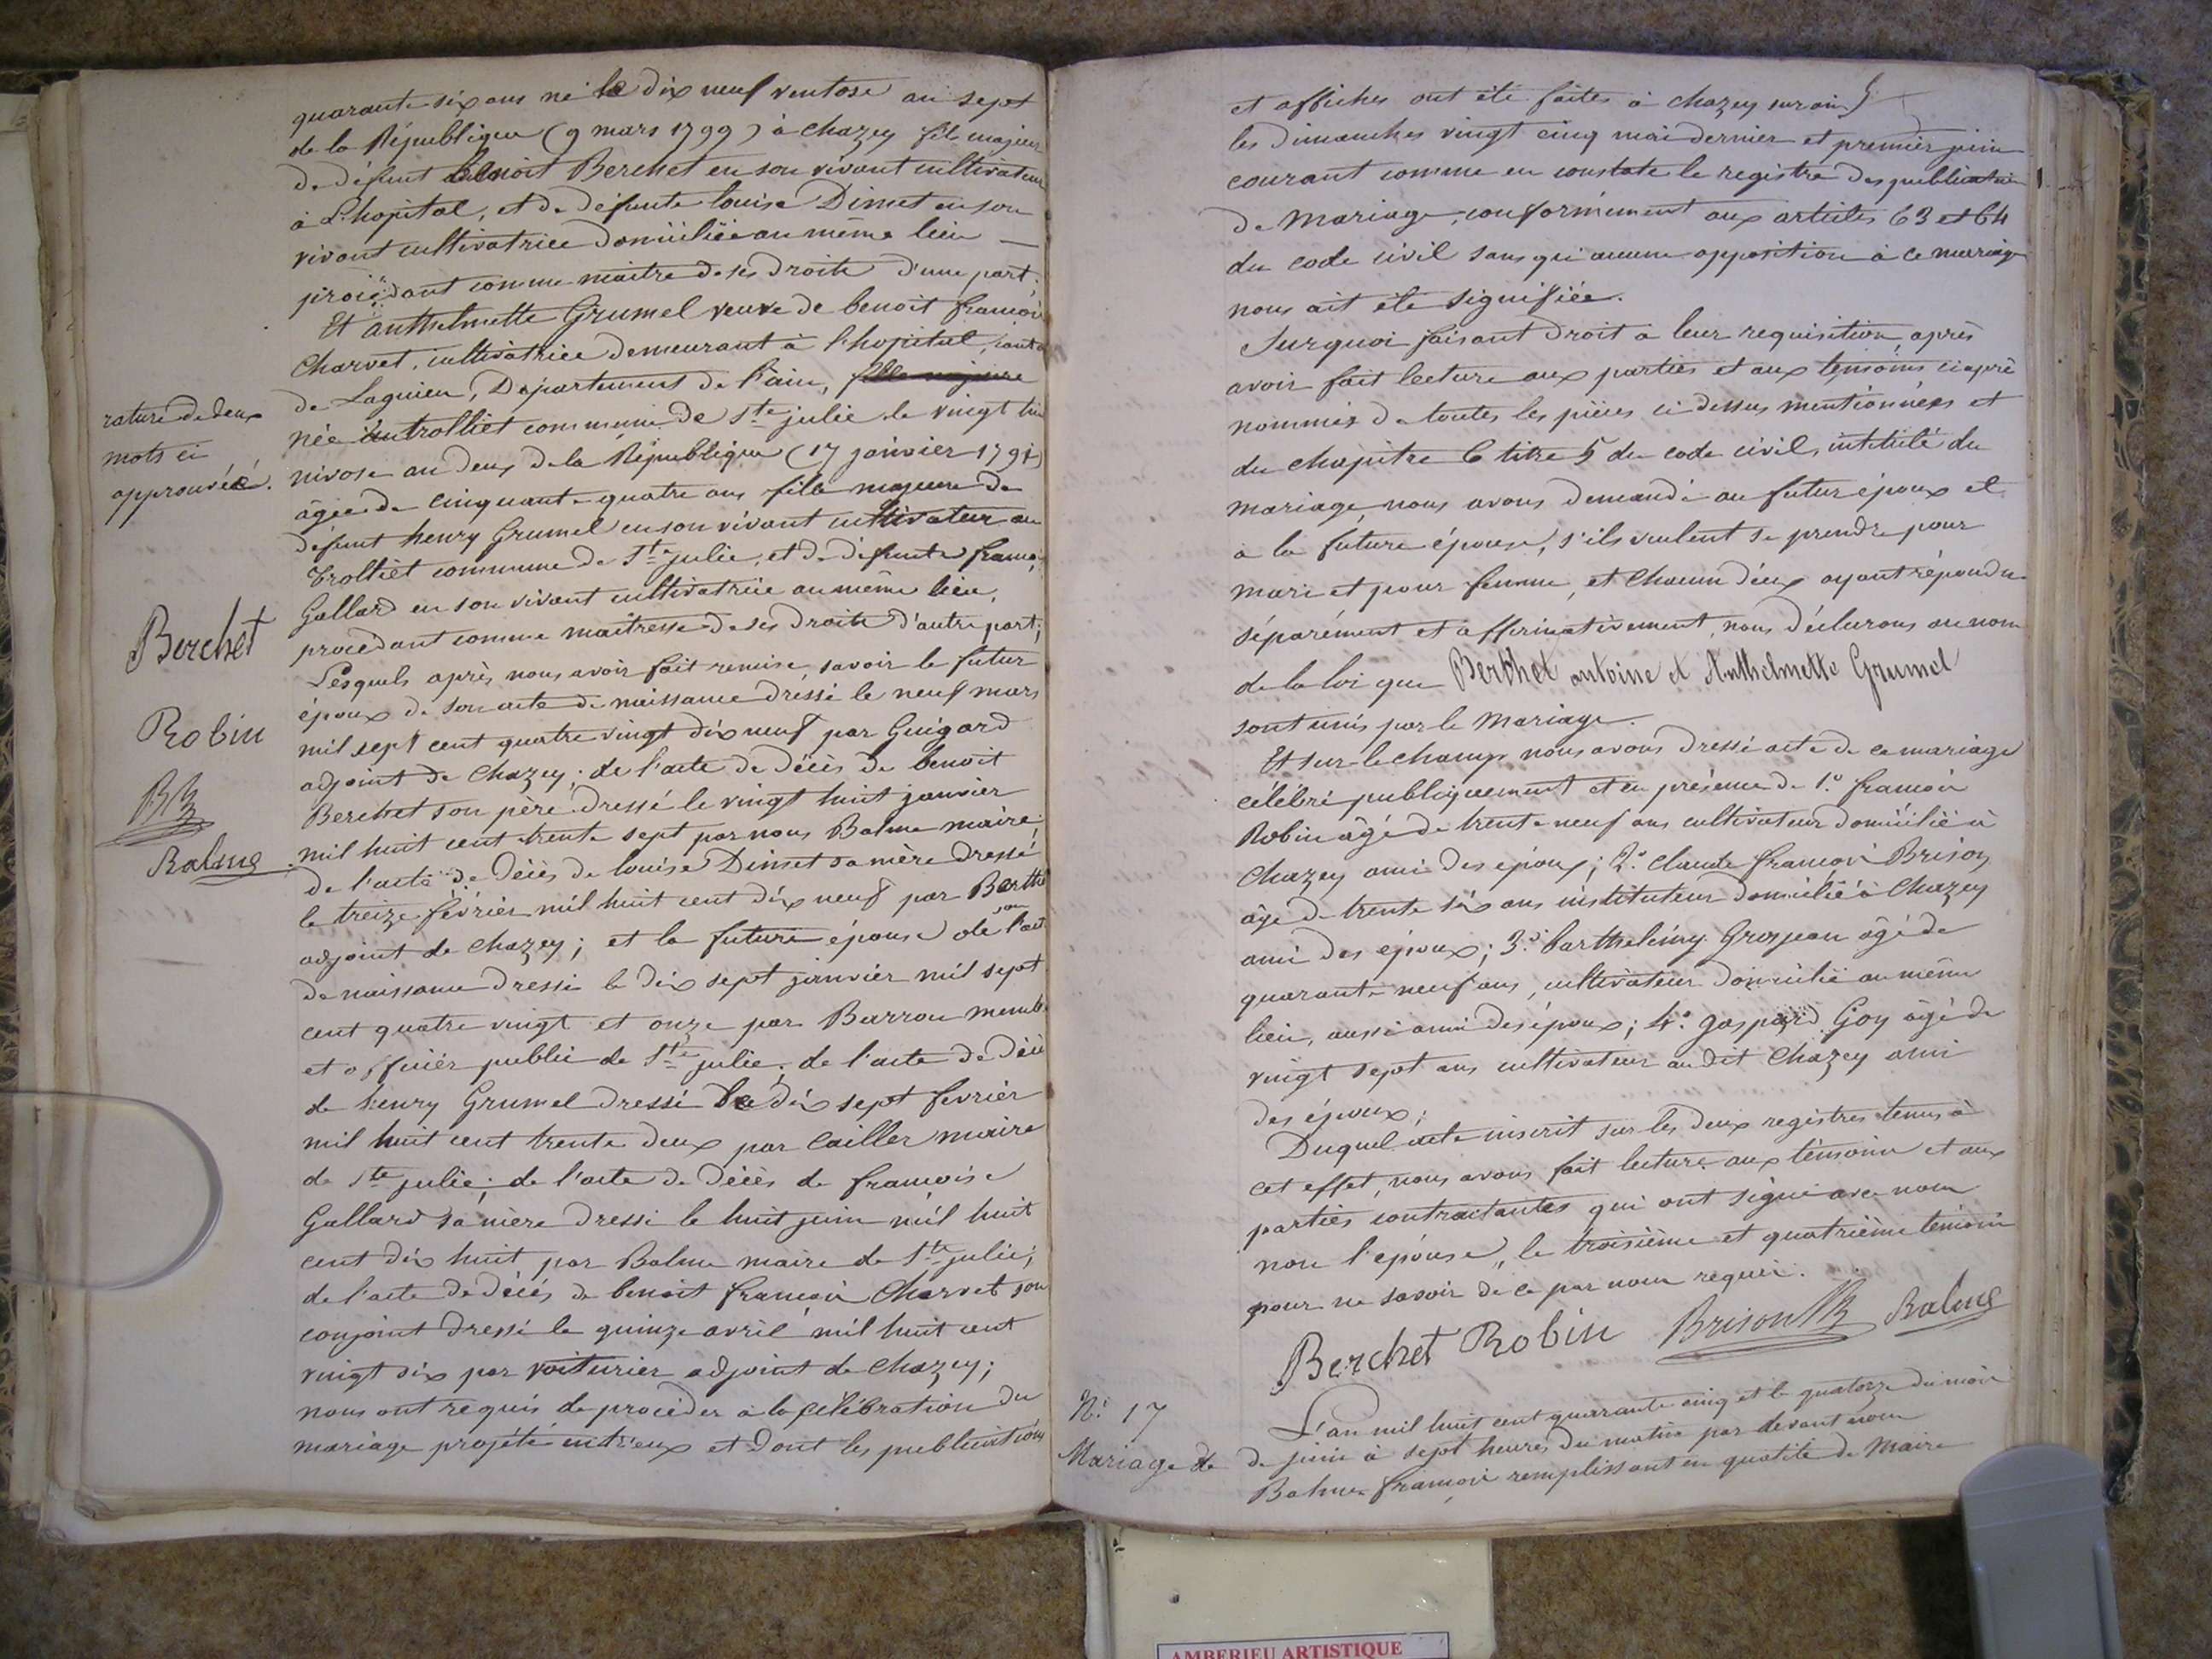 quarante six ans né le dix neuf ventose an sept
de la République (9 mars 1799) à chazey fils majeur
de défunt Benoit Berchet en son vivant cultivateur
à L'hopital, et de défunte louise Dimet en son
vivant cultivatrice domiciliée au même lieu —
procédant comme maitre de ses droits d'une part;
Et anthelmette Grumel veuve de benoit françois
Charvet, cultivatrice demeurant à l'hopital, canton
de Lagnieu, Département de l'ain, fille majeure
née au trolliet commune de Ste julie le vingt huit
nivose an deux de la République (17 janvier 1791)
âgée de cinquante quatre ans fille majeure de
défunt henry Grumel en son vivant cultivateur au
Trolliet commune de Ste julie, et de défunte françoise
Gallard en son vivant cultivatrice au même lieu,
procédant comme maitresse de ses droits d'autre part;
Lesquels après nous avoir fait remise, savoir le futur
époux de son acte de naissance dressé le neuf mars
mil sept cent quatre vingt dix neuf par Guigard
adjoint de Chazey; de l'acte de décès de benoit
Berchet son père dressé le vingt huit janvier
mil huit cent trente sept par nous Balme maire;
de l'acte de décès de louise Dimet sa mère dressé
le treize février mil huit cent dix neuf par Berthe
adjoint de chazey; et la future épouse de son l'acte
de naissance dressé le dix sept janvier mil sept
cent quatre vingt et onze par Barrou membre
et officier public de Ste julie; de l'acte de décès
de henry Grumel dressé le dix sept fevrier
mil huit cent trente deux par Cailler maire
de Ste julie; de l'acte de décès de francoise
Gallard sa mère dressé le huit juin mil huit
cent dix huit par Balme maire de Ste julie;
de l'acte de décès de benoit françois Charvet son
conjoint dressé le quinze avril mil huit cent
vingt six par voiturier adjoint de Chazey;
nous ont requis de procéder à la célébration du
mariage projeté entr'eux et dont les publications
rature de deux
mots ci
approuvée.
Berchet
Robin
BB
Balme
et affiches ont été faites à chazey sur ain
les dimanches vingt cinq mai dernier et premier juin
courant comme en constate le registre des publications
de mariage, conformément aux articles 63 et 64
du code civil sans qu'aucune opposition à ce mariage
nous ait été signifiée.
Surquoi faisant droit à leur requisition, après
avoir fait lecture aux parties et aux témoins ci après
nommés de toutes les pièces ci dessus mentionnées et
du chapitre 6 titre 5 du code civil, intitulé du
mariage, nous avons demandé au futur époux et
à la future épouse, s'ils veulent se prendre pour
mari et pour femme, et chacun d'eux ayant répondu
séparément et affirmativement, nous déclarons au nom
de la loi que Berthet antoine et Anthelmette Grumel
sont unis par le Mariage.
Et sur-le-champ nous avons dressé acte de ce mariage
célébré publiquement et en présence de 1.° françois
Robin âgé de trente neuf ans cultivateur domicilié à
Chazey ami des époux; 2.° claude françois Brison
âgé de trente six ans instituteur domicilié à Chazey
ami des époux; 3.° barthelémy Grosjean âgé de
quarante neuf ans, cultivateur domicilié au même
lieu, aussi ami des époux; 4.° gaspard Goy âgé de
vingt sept ans cultivateur au dit Chazey ami
des époux;
Duquel acte inscrit sur les deux registres tenus à
cet effet, nous avons fait lecture aux témoins et aux
parties contractantes qui ont signé avec nous
non l'épouse, le troisième et quatrième témoin
pour ne savoir de ce par nous requis.
Berchet Robin Brison BB Balme
N.° 17
Mariage de
L'an mil huit cent quarante cinq et le quatorze du mois
de juin à sept heures du matin par devant nous
Balme françois remplissant en qualité de Maire
AMBERIEU ARTISTIQUE